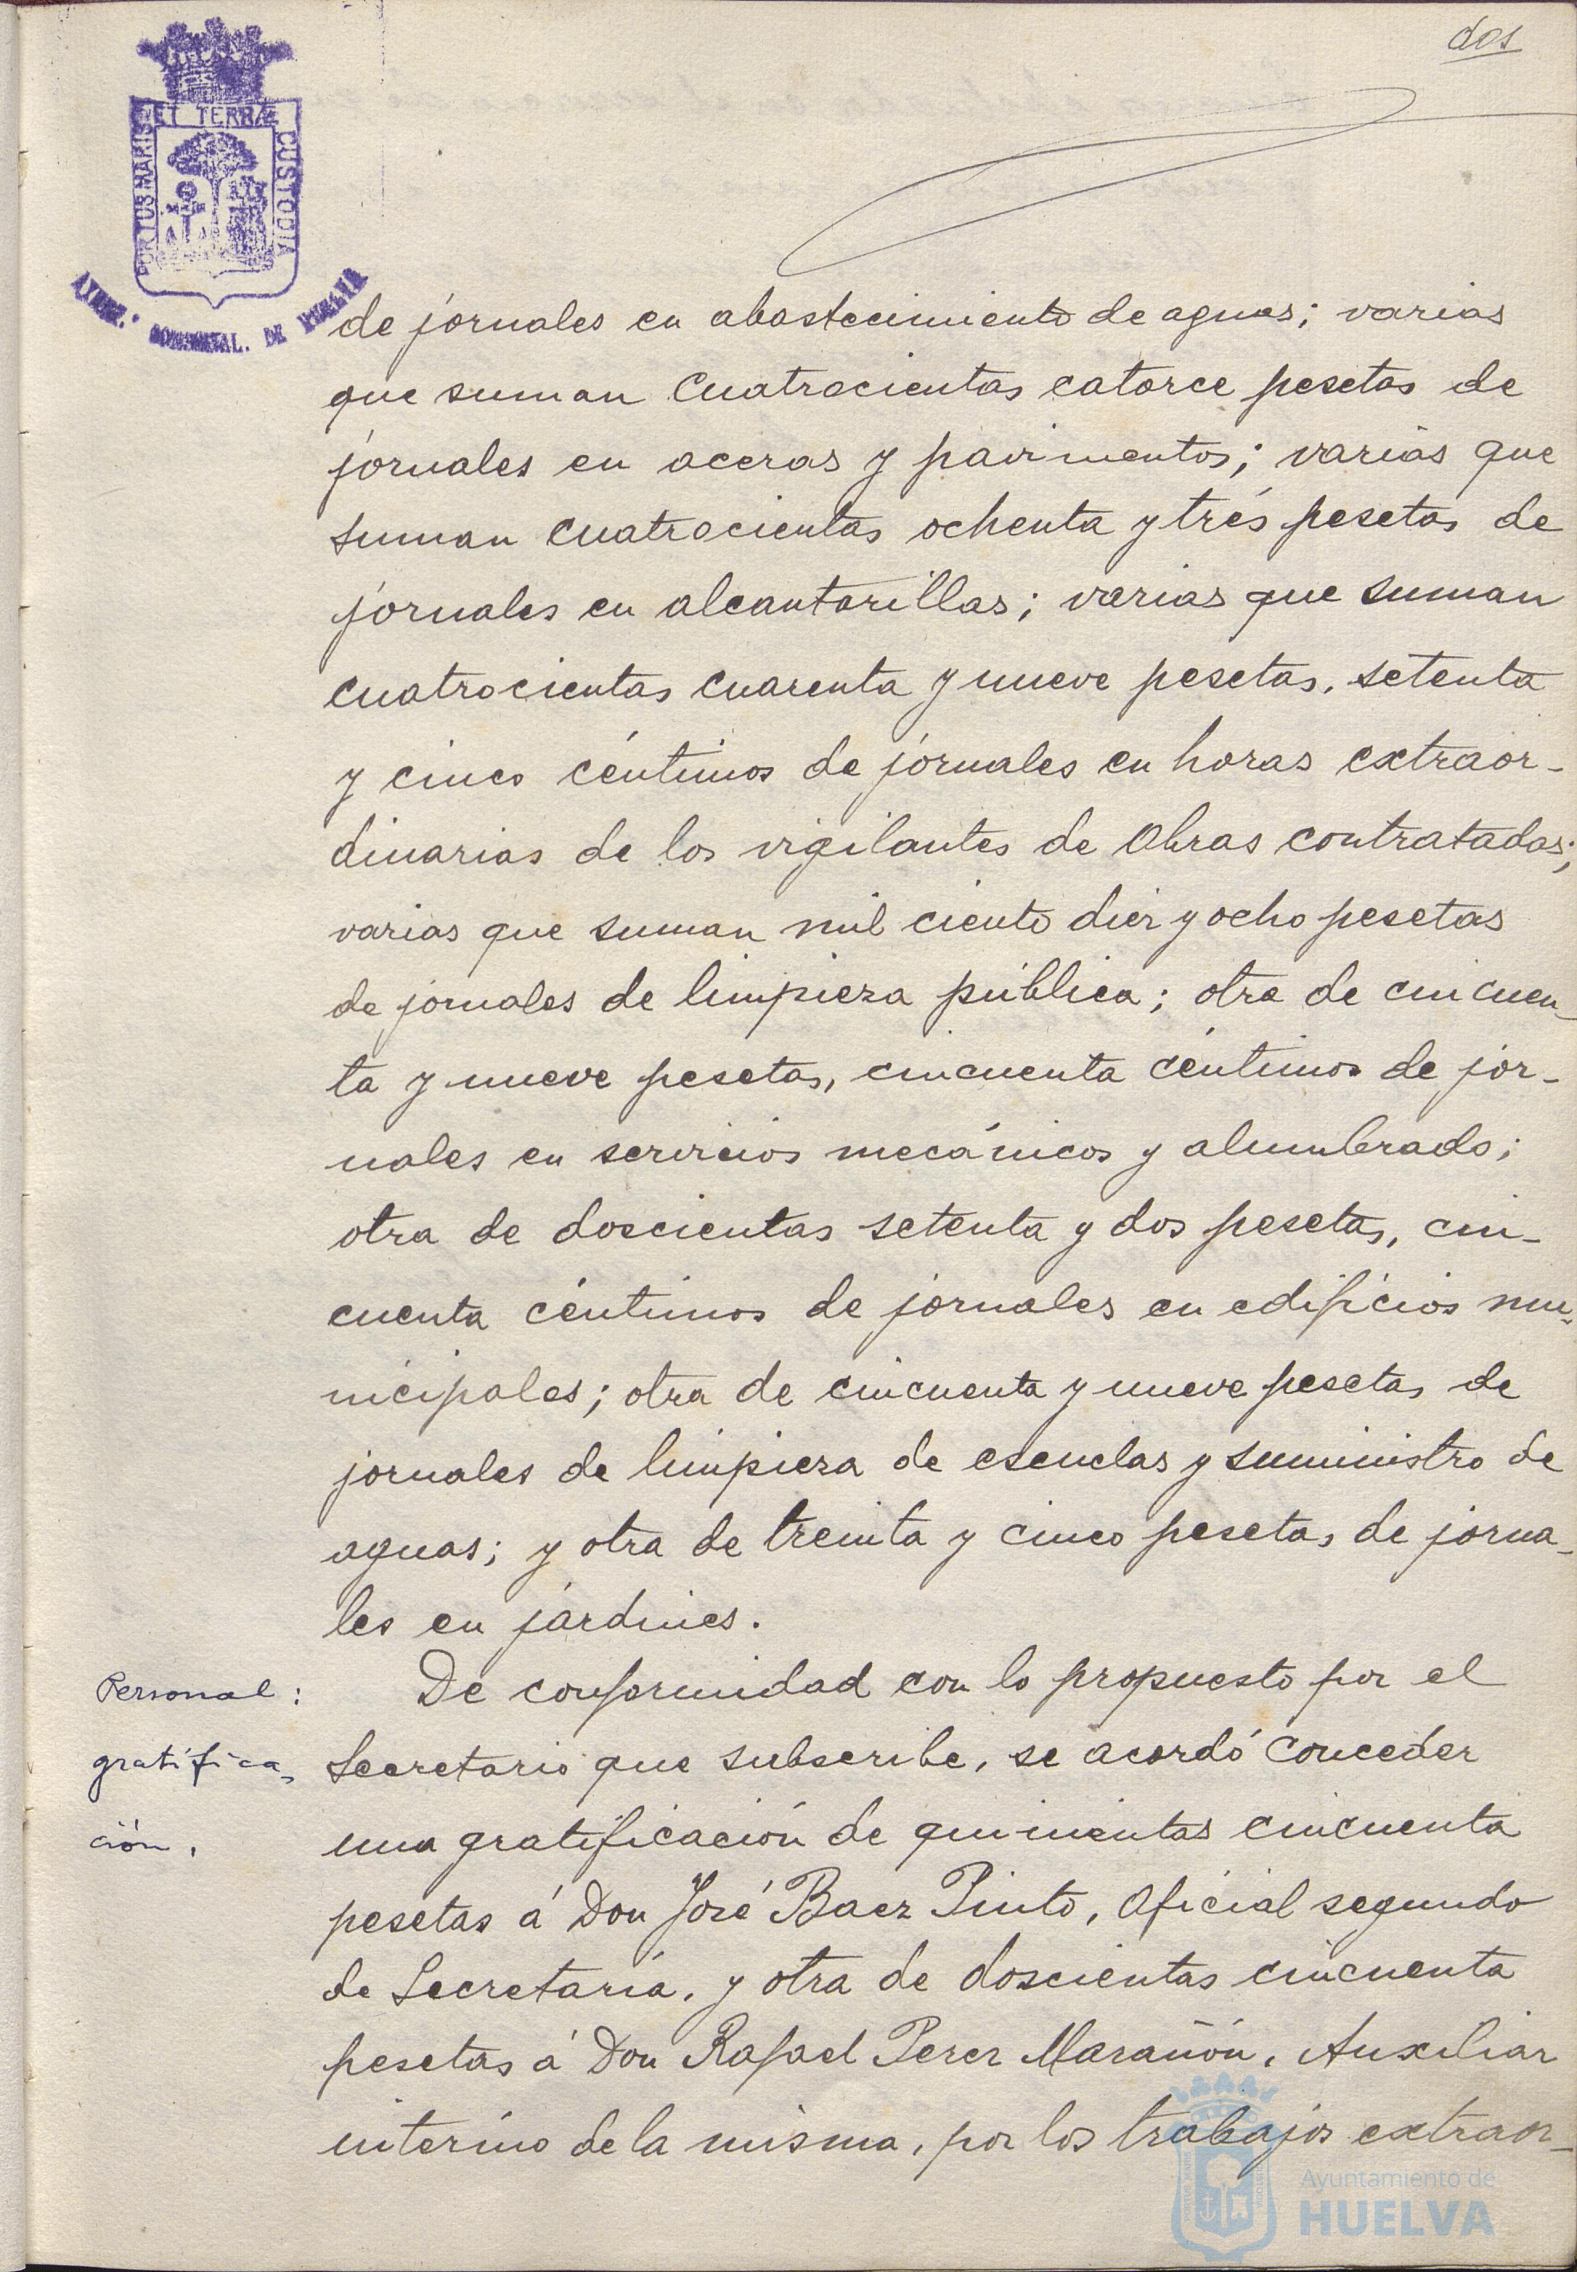 dos
PORTUS MARIS ET TERRÆ CUSTODIA
AYUNT. CONSTITAL. DE HUELVA
de jornales en abastecimiento de aguas; varias
que suman cuatrocientas catorce pesetas de
jornales en aceras y pavimentos; varias que
suman cuatrocientas ochenta y trés pesetas de
jornales en alcantarillas; varias que suman
cuatrocientas cuarenta y nueve pesetas, setenta
y cinco céntimos de jornales en horas extraor-
dinarias de los vigilantes de Obras contratadas;
varias que suman mil ciento diez y ocho pesetas
de jornales de limpieza pública; otra de cincuen-
ta y nueve pesetas, cincuenta céntimos de jor-
nales en servicios mecánicos y alumbrado;
otra de doscientas setenta y dos pesetas, cin-
cuenta céntimos de jornales en edificios mu-
nicipales; otra de cincuenta y nueve pesetas de
jornales de limpieza de escuelas y suministro de
aguas; y otra de treinta y cinco pesetas de jorna-
les en jardines.
Personal:
gratifica-
ción.
De conformidad con lo propuesto por el
Secretario que subscribe, se acordó conceder
una gratificación de quinientas cincuenta
pesetas á Don José Baez Pinto, Oficial segundo
de Secretaría, y otra de doscientas cincuenta
pesetas á Don Rafael Perez Marañón, Auxiliar
interino de la misma, por los trabajos extraor-
Ayuntamiento de
HUELVA